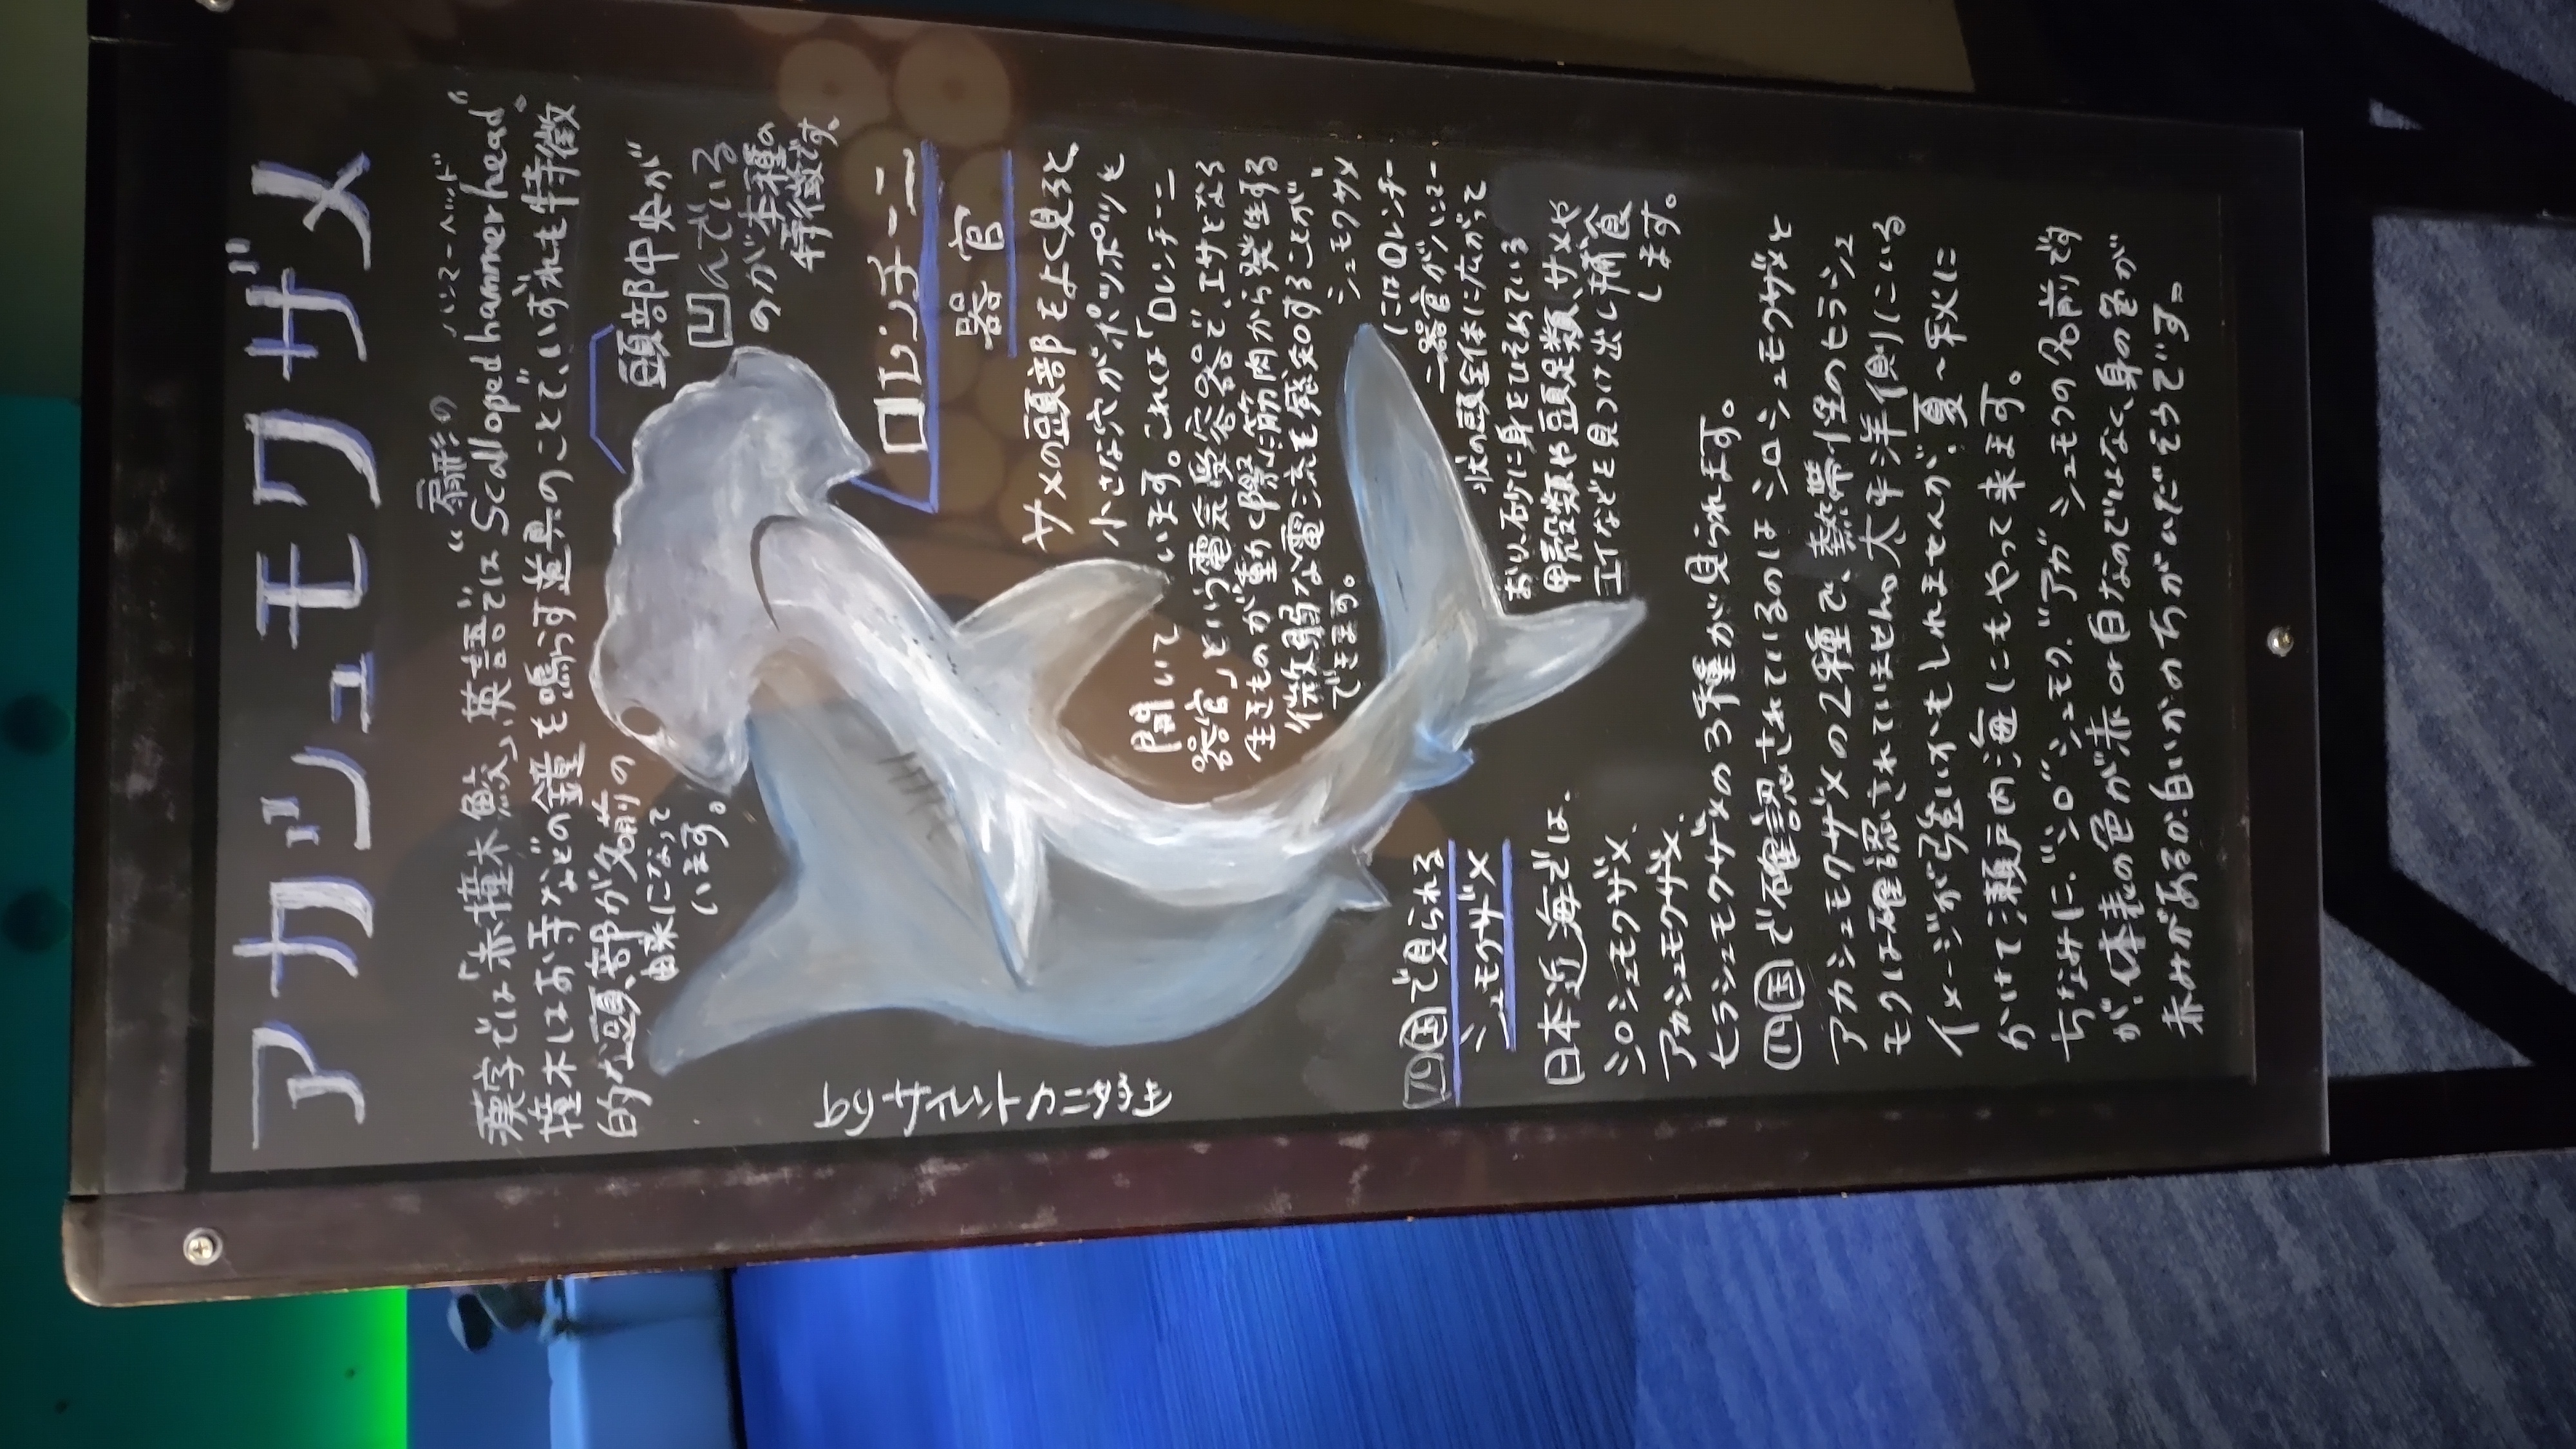 アカシュモクザメ
漢字では「赤撞木鮫」、英語では“扇形の Scalloped hammerhead ハンマーヘッド”。
撞木はお寺などの鐘を鳴らす道具のことで、いずれも特徴
的な頭部が名前の
由来になって
います。
頭部中央が
凹んでいる
のが本種の
特徴です。
ロレンチーニ
器官
サメの頭部をよく見ると、
小さな穴がポツポツと
開いています。これは「ロレンチーニ
器官」という電気受容器で、エサとなる
生きものが動く際に筋肉から発生する
微弱な電流を感知することが
できます。
シュモクザメ
にはロレンチー
ニ器官がハンマー
状の頭全体に広がって
おり、砂に身をひそめている
甲殻類や頭足類、サメや
エイなどを見つけ出し捕食
します。
by サイレントカニダます
四国で見られる
シュモクザメ
日本近海では、
シロシュモクザメ、
アカシュモクザメ、
ヒラシュモクザメの3種が見られます。
四国で確認されているのはシロシュモクザメと
アカシュモクザメの2種で、熱帯性のヒラシュ
モクは確認されていません。太平洋側にいる
イメージが強いかもしれませんが、夏〜秋に
かけて瀬戸内海にもやって来ます。
ちなみに、“シロ”シュモク、“アカ”シュモクの名前です
が、体表の色が赤or白なのではなく、身の色が
赤みがあるか白いかのちがいだそうです。